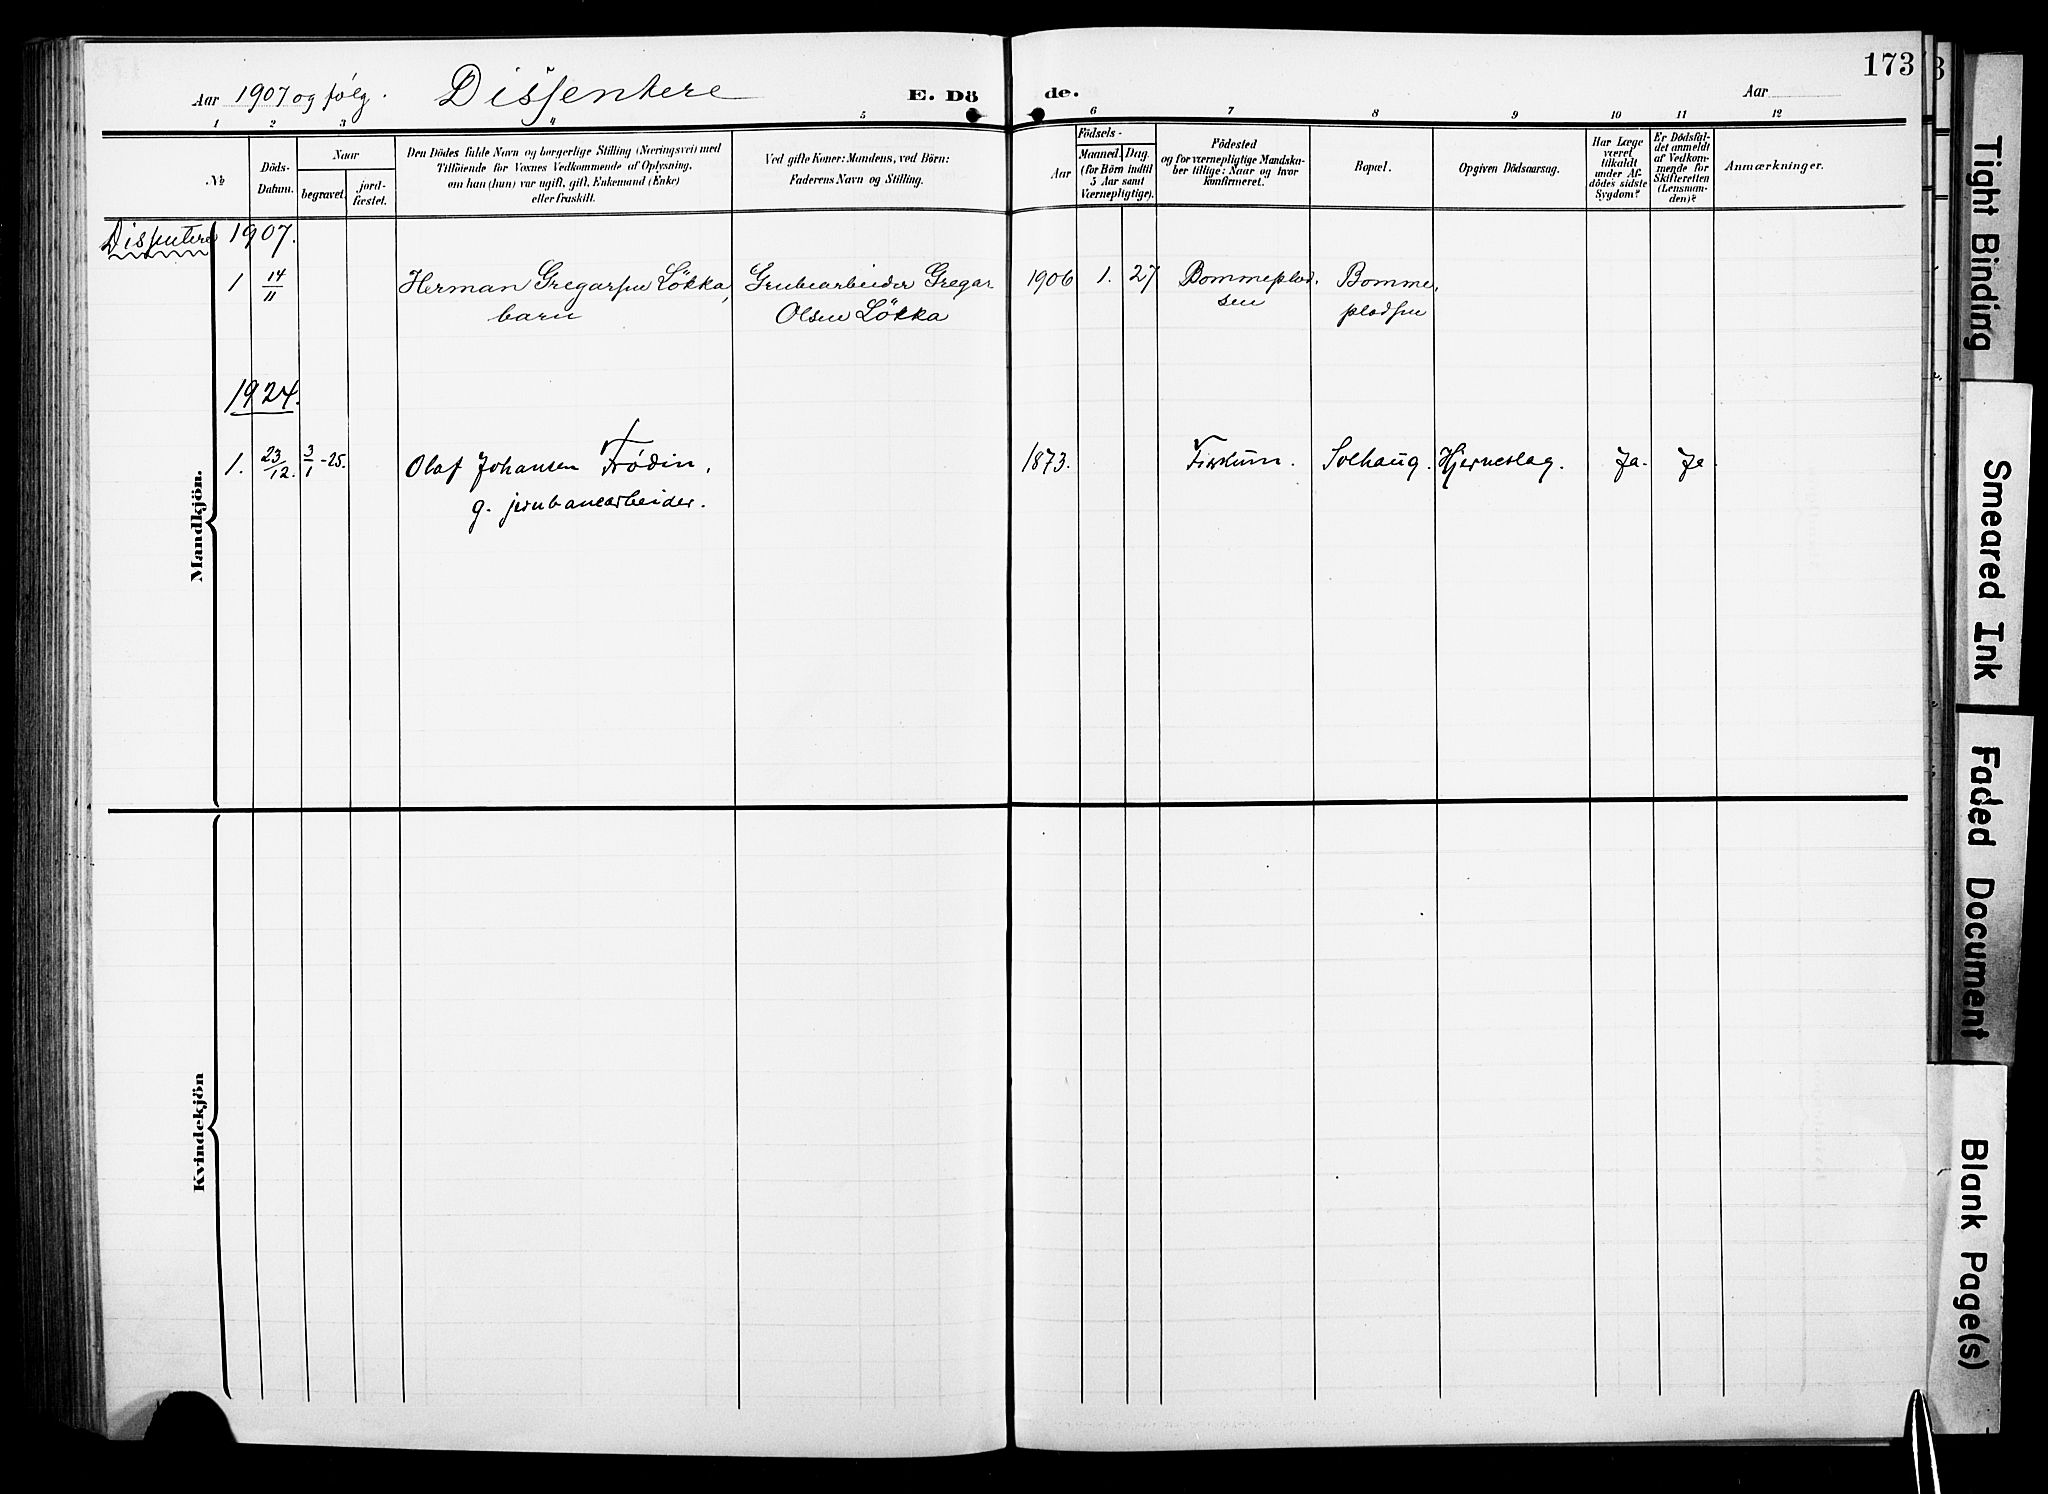 173
Aar 1907 og følg. Dissentere E. Dö de. Aar
1 2 3 4 5 6 7 8 9 10 11 12
No
Döds-
Datum.
Naar
begravet.
jord-
fæstet.
Den Dödes fulde Navn og borgerlige Stilling (Næringsvei) med
Tilföiende for Voxnes Vedkommende af Oplysning,
om han (hun) var ugift, gift, Enkemand (Enke)
eller fraskilt.
Ved gifte Koner: Mandens, ved Börn:
Faderens Navn og Stilling.
Födsels-
Aar
Maaned.
Dag.
(for Börn indtil
5 Aar samt
Værnepligtige).
Födested
og for værnepligtige Mandska-
ber tillige: Naar og hvor
konfirmeret.
Bopæl.
Opgiven Dödsaarsag.
Har Læge
været
tilkaldt
under Af-
dödes sidste
Sygdom?
Er Dödsfal-
det anmeldt
af Vedkom-
mende for
Skifteretten
(Lensman-
den)?
Anmærkninger.
Dissentere 1907.
1 14/11 Herman Gregarsen Løkka, Grubearbeider Gregar 1906 1. 27 Bommeplad- Bomme-
barn Olsen Løkka sen pladsen
1924.
1. 23/12. 3/1-25. Olaf Johansen Frødin, 1873. Fiskum. Solhaug. Hjerneslag. Ja. Ja.
g. jernbanearbeider.
Mandkjön.
Kvindekjön
Tight Binding
Smeared Ink
Faded Document
Blank Page(s)